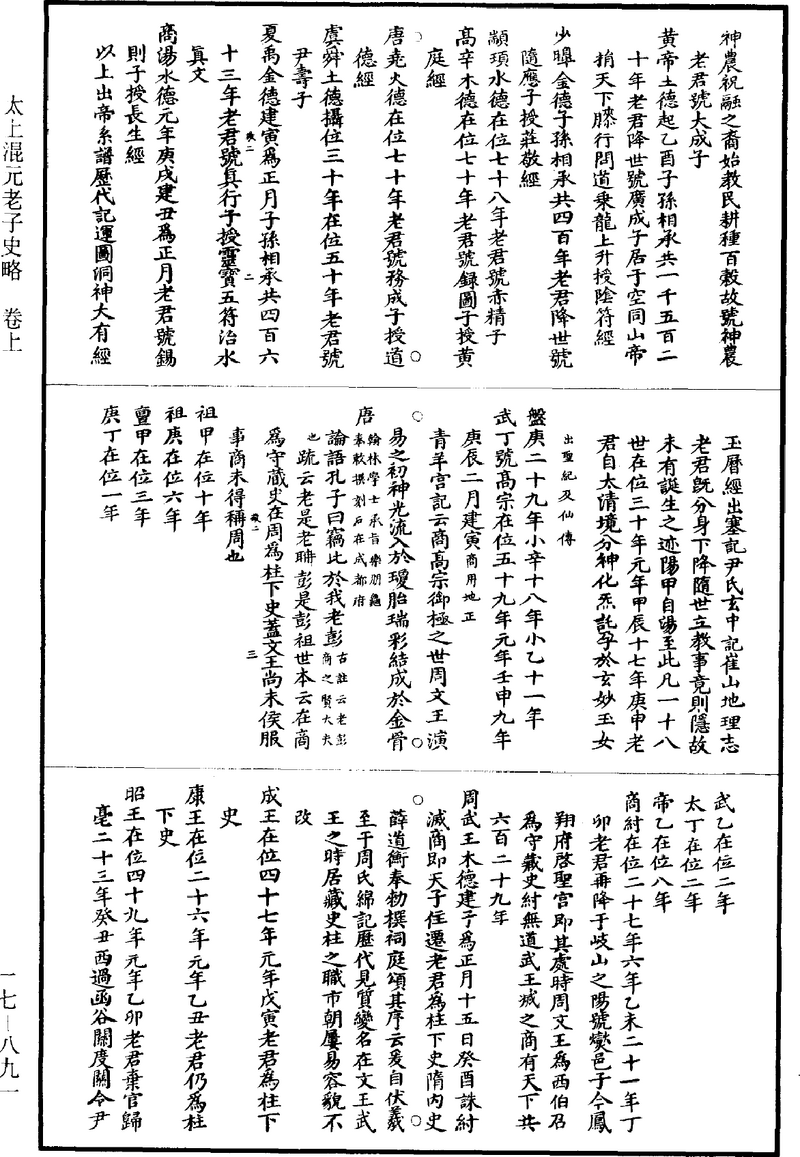 神農祝融之裔始教民耕種百穀故號神農
老君號大成子
黃帝土德起乙酉子孫相承共一千五百二
十年老君降世號廣成子居于空同山帝
捎天下膝行問道乘龍上升授陰符經
少皥金德子孫相承共四百年老君降世號
隨應子授莊敬經
顓頊水德在位七十八年老君號赤精子
高辛木德在位七十年老君號録圖子授黃
庭經
唐堯火德在位七十年老君號務成子授道
德經
虞舜土德攝位三十年在位五十年老君號
尹壽子
夏禹金德建寅爲正月子孫相承共四百六
十三年老君號真行子授靈寶五符治水
真文
商湯水德元年庚戌建丑爲正月老君號錫
則子授長生經
以上出帝系譜歷代記運圖洞神大有經
玉曆經出塞記尹氏玄中記崔山地理志
老君既分身下降隨世立教事竟則隱故
未有誕生之迹陽甲自湯至此凡一十八
世在位三十年元年甲辰十七年庚申老
君自太清境分神化炁託孕於玄妙玉女
出聖紀及仙傳
盤庚二十九年小辛十八年小乙十一年
武丁號高宗在位五十九年元年壬申九年
庚辰二月建寅商用地正
青羊宮記云商高宗御極之世周文王演
易之初神光流入於瓊胎瑞彩結成於金骨
唐翰林學士承旨樂朋龜奉敕撰刻石在成都府
論語孔子曰竊比於我老彭古註云老彭商之賢大夫
也疏云老是老聃彭是彭祖世本云在商
爲守藏史在周爲柱下史蓋文王尚未侯服
事商未得稱周也
祖甲在位十年
祖庚在位六年
亶甲在位三年
庚丁在位一年
武乙在位二年
太丁在位二年
帝乙在位八年
商紂在位二十七年六年乙未二十一年丁
卯老君再降于岐山之陽號燮邑子今鳳
翔府啓聖宮即其處時周文王爲西伯召
爲守藏史紂無道武王滅之商有天下共
六百二十九年
周武王木德建子爲正月十五日癸酉誅紂
滅商即天子位遷老君爲柱下史隋内史
薛道衡奉勑撰祠庭頌其序云爰自伏羲
至于周氏綿記歷代見質變名在文王武
王之時居藏史柱之職市朝屢易容貌不
改
成王在位四十七年元年戊寅老君為柱下
史
康王在位二十六年元年乙丑老君仍爲柱
下史
昭王在位四十九年元年乙卯老君棄官歸
亳二十三年癸丑西過函谷關度關令尹
太上混元老子史略 卷上
一七—八九一